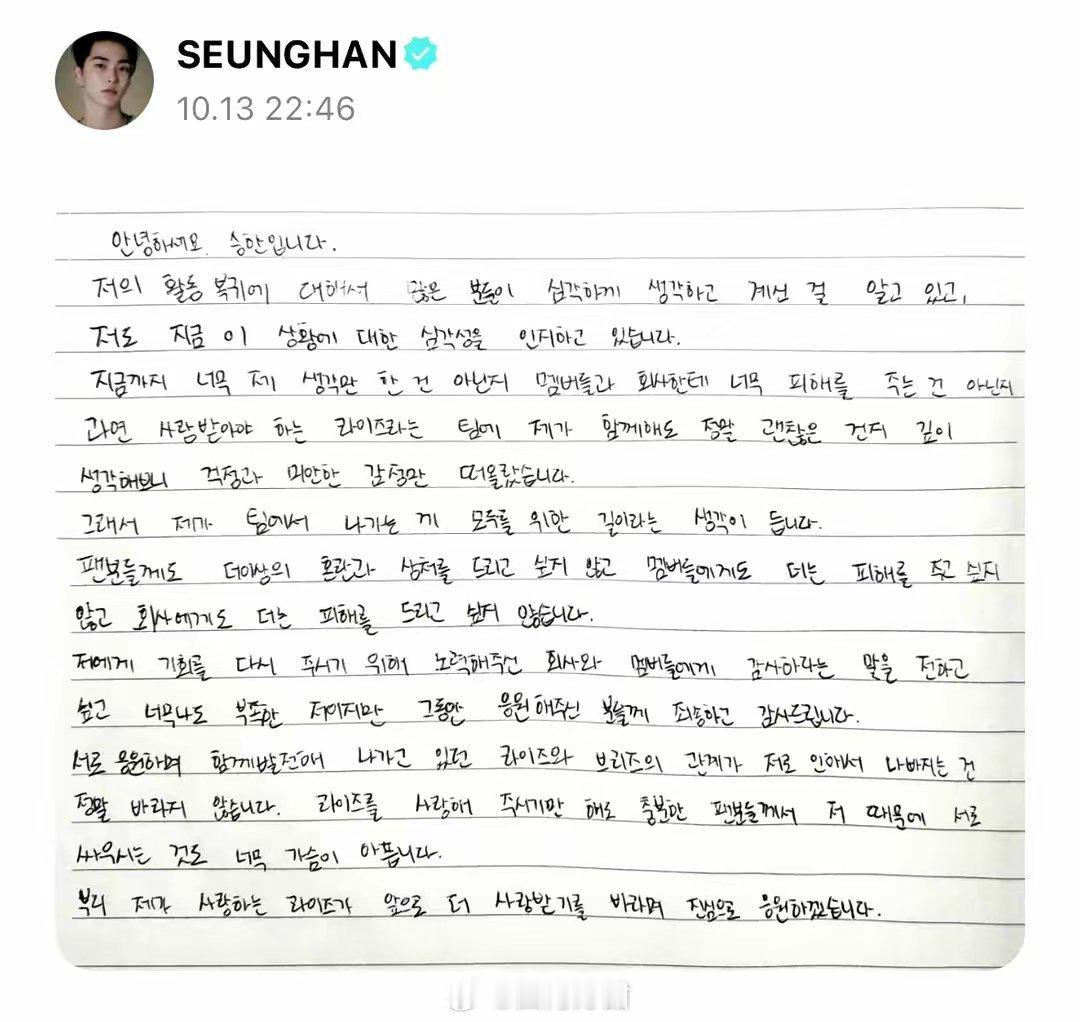 SEUNGHAN
10.13 22:46
안녕하세요 승한입니다.
저의 활동 복귀에 대해서 많은 분들이 심각하게 생각하고 계신 걸 알고 있고,
저도 지금 이 상황에 대한 심각성을 인지하고 있습니다.
지금까지 너무 제 생각만 한 건 아닌지 멤버들과 회사한테 너무 피해를 주는 건 아닌지
과연 사랑받아야 하는 라이즈라는 팀에 제가 함께해도 정말 괜찮은 건지 깊이
생각해보니 걱정과 미안한 감정만 떠올랐습니다.
그래서 제가 팀에서 나가는 게 모두를 위한 길이라는 생각이 듭니다.
팬분들께도 더이상의 혼란과 상처를 드리고 싶지 않고 멤버들에게도 더는 피해를 주고 싶지
않고 회사에게도 더는 피해를 드리고 싶지 않습니다.
저에게 기회를 다시 주시기 위해 노력해주신 회사와 멤버들에게 감사하라는 말을 전하고
싶고 너무나도 부족한 저이지만 그동안 응원해주신 분들께 죄송하고 감사드립니다.
서로 응원하며 함께발전해 나가고 있던 라이즈와 브리즈의 관계가 저로 인해서 나빠지는 건
정말 바라지 않습니다. 라이즈를 사랑해 주시기만 해도 충분한 팬분들께서 저 때문에 서로
싸우시는 것도 너무 가슴이 아픕니다.
부디 제가 사랑하는 라이즈가 앞으로 더 사랑받기를 바라며 진심으로 응원하겠습니다.